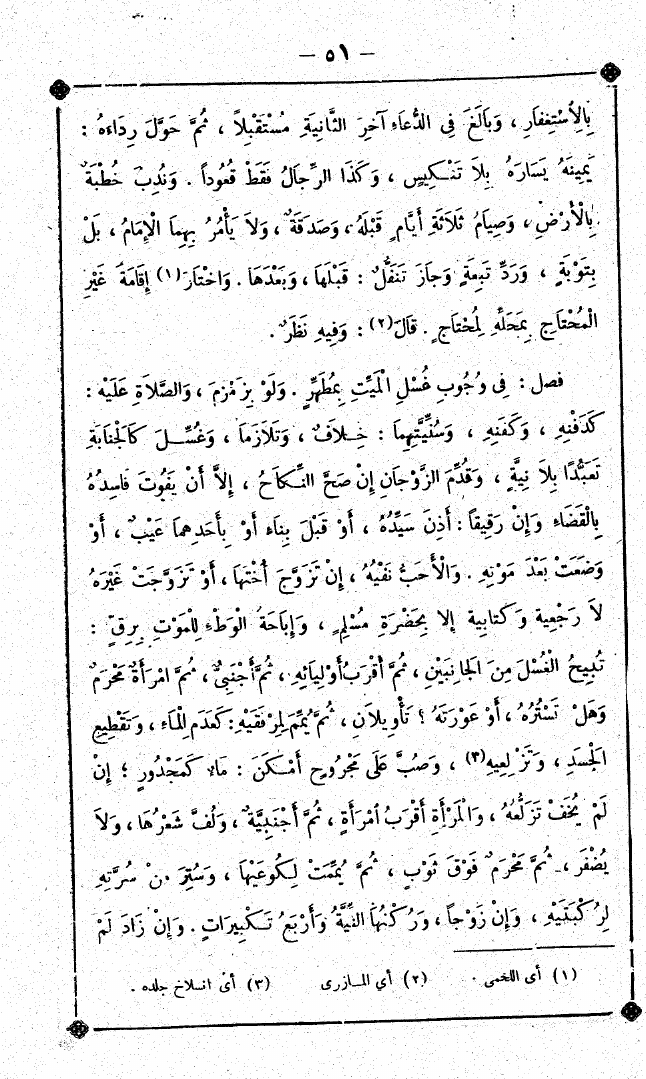 — ٥١ —
بِالِاسْتِغْفَارِ ، وَبَالَغَ فِى الدُّعَاءِ آخِرَ الثَّانِيَةِ مُسْتَقْبِلاً ، ثُمَّ حَوَّلَ رِدَاءَهُ :
يَمِينَهُ يَسَارَهُ بِلاَ تَنْكِيسٍ ، وَكَذَا الرِّجَالُ فَقَطْ قُعُوداً . وَنُدِبَ خُطْبَةٌ
بِالْأَرْضِ ، وَصِيَامُ ثَلاَثَةِ أَيَّامٍ قَبْلَهُ ، وَصَدَقَةٌ ، وَلاَ يَأْمُرُ بِهِمَا الْإِمَامُ ، بَلْ
بِتَوْبَةٍ ، وَرَدِّ تَبِعَةٍ وَجَازَ تَنَفُّلٌ : قَبْلَهَا ، وَبَعْدَهَا . وَاخْتَارَ (١) إِقَامَةَ غَيْرِ
الْمُحْتَاجِ بِمَحَلِّهِ لِمُحْتَاجٍ . قَالَ (٢) : وَفِيهِ نَظَرٌ .
فصل : فِى وُجُوبِ غُسْلِ الْمَيِّتِ بِمُطَهِّرٍ . وَلَوْ بِزَمْزَمَ ، وَالصَّلاَةِ عَلَيْهِ :
كَدَفْنِهِ ، وَكَفَنِهِ ، وَسُنِّيَّتِهِمَا : خِلاَفٌ ، وَتَلاَزَمَا ، وَغُسِّلَ كَالْجَنَابَةِ
تَعَبُّدًا بِلاَ نِيَّةٍ ، وَقُدِّمَ الزَّوْجَانِ إِنْ صَحَّ النِّكَاحُ ، إِلاَّ أَنْ يَفُوتَ فَاسِدُهُ
بِالْقَضَاءِ وَإِنْ رَقِيقاً : أَذِنَ سَيِّدُهُ ، أَوْ قَبْلَ بِنَاءٍ أَوْ بِأَحَدِهِمَا عَيْبٌ ، أَوْ
وَضَعَتْ بَعْدَ مَوْتِهِ . وَالْأَحَبُّ نَفْيُهُ ، إِنْ تَزَوَّجَ أُخْتَهَا ، أَوْ تَزَوَّجَتْ غَيْرَهُ
لاَ رَجْعِيةٍ وَكتابيةٍ إلا بِحَضْرَةِ مُسْلِمٍ ، وَإِبَاحَةُ الْوَطْءِ لِلْمَوْتِ بِرِقٍّ :
تُبِيحُ الْغُسْلَ مِنَ الْجَانِبَيْنِ ، ثُمَّ أَقْرَبُ أَوْلِيَائِهِ ، ثُمَّ أَجْنَبِيٌّ ، ثُمَّ امْرَأَةٌ مَحْرَمٌ
وَهَلْ تَسْتُرُهُ ، أَوْ عَوْرَتَهُ ؟ تَأْوِيلاَنِ ، ثُمَّ يُمِّمَ لِمِرْفَقَيْهِ : كَعَدَمِ الْمَاءِ ، وَتَقْطِيعِ
الْجَسَدِ ، وَتَزْلِيعِهِ (٣) ، وَصُبَّ عَلَى مَجْرُوحٍ أَمْكَنَ : مَاءٌ كَمَجْدُورٍ ؛ إِنْ
لَمْ يُخَفْ تَزَلُّعُهُ ، وَالْمَرْأَةِ أَقْرَبُ امْرَأَةٍ ، ثُمَّ أَجْنَبِيَّةٌ ، وَلُفَّ شَعْرُهَا ، وَلاَ
يُضْفَرَ ، ثُمَّ مَحْرَمٌ فَوْقَ ثَوْبٍ ، ثُمَّ يُمِّمَتْ لِكُوعَيْهَا ، وَسُتِرَ مِنْ سُرَّتِهِ
لِرُكْبَتَيْهِ ، وَإِنْ زَوْجاً ، وَرُكْنُهَا النِّيَّةُ وَأَرْبَعُ تَكْبِيرَاتٍ . وَإِنْ زَادَ لَمْ
(١) أى اللخمى . (٢) أي المازرى (٣) أى انسلاخ جلده .